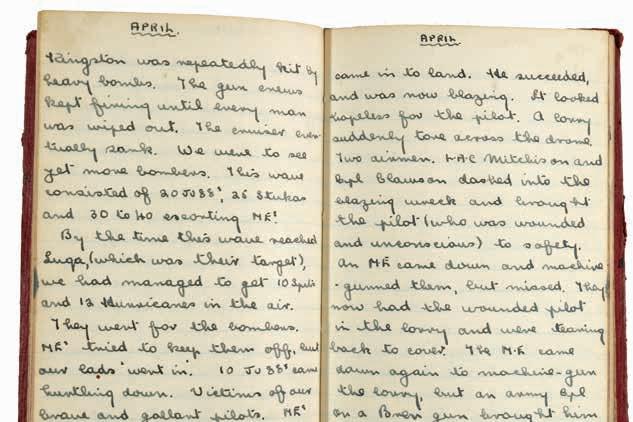 APRIL.
Kingston was repeatedly hit by
heavy bombs. The gun crews
kept firing until every man
was wiped out. The cruiser even-
tually sank. We went to see
yet more bombers. This wave
consisted of 20 JU88s, 25 Stukas
and 30 to 40 escorting ME's
By the time this wave reached
Luqa, (which was their target),
we had managed to get 10 Spits
and 12 Hurricanes in the air.
They went for the bombers.
ME's tried to keep them off, but
our lads 'went in'. 10 JU88s came
hurtling down. Victims of our
brave and gallant pilots. ME's
APRIL
came in to land. He succeeded,
and was now blazing. It looked
hopeless for the pilot. A lorry
suddenly tore across the drome.
Two airmen, LAC Mitchison and
Cpl Clawson dashed into the
blazing wreck and brought
the pilot (who was wounded
and unconscious) to safety.
An ME came down and machine
-gunned them, but missed. They
now had the wounded pilot
in the lorry and were tearing
back to cover. The M.E came
down again to machine-gun
the lorry, but an army Cpl
on a Bren gun brought him